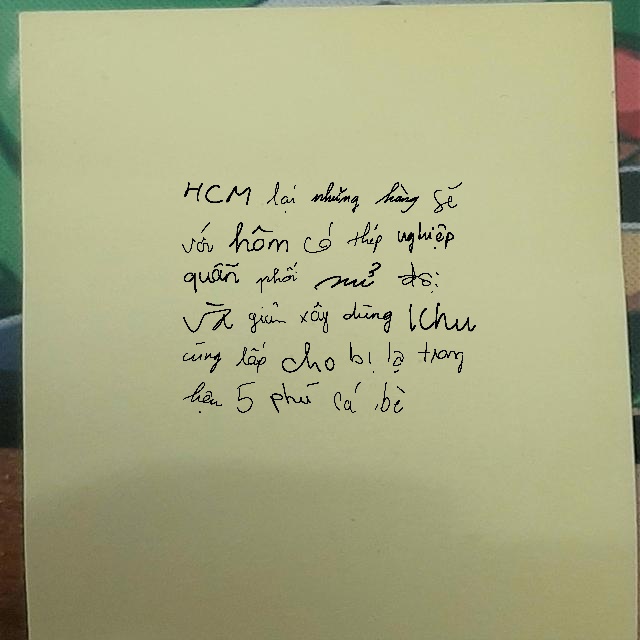 HCM lại những hàng sẽ
với hôm có thép nghiệp
quẫn phối mử đội
và giản xây dùng Khu
cũng lấp cho bị lạ trong
hện 5 phú cá bè